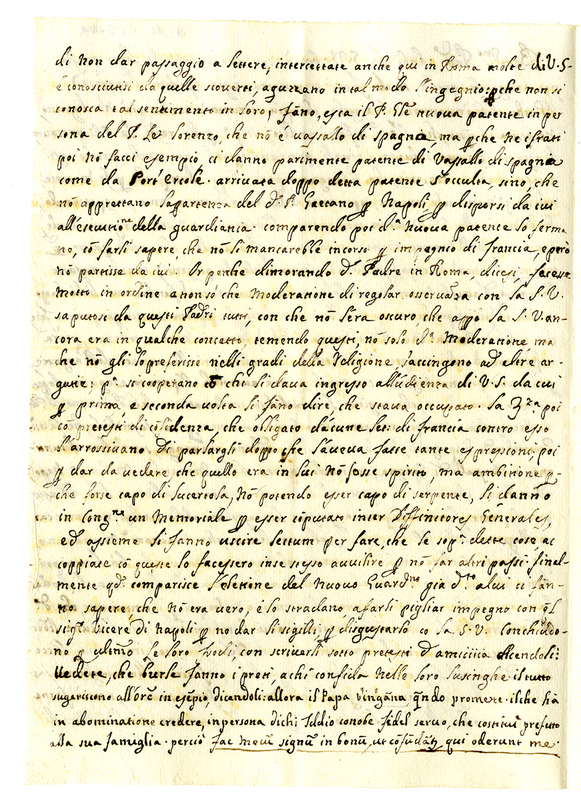 di non dar passaggio a lettere, intercettate anche qui in Roma molte di V.S.
è conosciutisi da quelle scoverti, aguzzano in tal modo l'ingegnio: pche non si
conosca tal sentimento in loro; fano, esca il P. Gle nuova patente in per
sona del P. Le Lorenzo, che nō é vassallo di spagna, ma pche ne
poi nō facci esempio, ci danno parimente patente di Vassallo di spagna
come da Port' Ercole. arrivata doppo detta patente l'occulta, sino, che
nō apprettano la partenza del do. P. Gaetano p Napoli, p disporsi da ivi
all'esecutne della guardiania. comparendo poi da. nuova patente lo ferma
no, cō farli sapere, che nō li mancarebbe incorso p impegnio di francia, e però
nō partisse da ivi. Or perche dimorando do. Padre in Roma, dicesi, facesse
motto in ordine a non só che Moderatione di regolar osservanza con la S. V.
saputosi da questi Padri tutti, con che nō l'era oscuro, che appo la S. V. an-
cora era in qualche concetto, temendo questi, nō solo da. Moderatione ma
che nō gli lo preferisse nelli gradi della Religione, s'accingono ad altre ar-
gutie: pa. si cooperano chi li dava ingresso all'udienza di V.S. da cui
p prima, e seconda volta li fano dire, che stava occupato. La 3za poi
có pretesti di cōfidenza, che obligato d'alcune leti di francia contro esso
l'arrossivano. Di parlargli doppo che l'aveva fatte tante espressioni, poi
p dar da vedere che quello era in lui nō fosse spirito, ma ambitione p
che forse capo di lucertola, nō potendo esser capo di serpente, li danno
in Congne un Memoriale p esser cōputato inter Diffinitores Generales,
ed assieme li fanno uscire lectum per fare, che le sopa. dette cose ac
coppiate cō queste lo facessero inse stesso avvilire p nō far altri passi: final-
mente qdo. comparisce l'elettione del Nuovo Guardno già dto alui li fan-
no sapere, che nō era vero, é lo stradano afarli pigliar impegno con ql
sigr. Vicere di Napoli p no dar li sigilli, p disgustarlo co la S. V. Conchiudo-
no p ultimo le loro frodi, con scriverli sotto pretesti d'amicitia dicendoli:
Vedete, che burle fanno i preti, achi confida nelle loro lusinghe il tutto
sugeriscono in esempio, dicendoli: allora il Papa v'ingāna quādo promete. ilche hà
in abominatione credere, inpersona dichi Iddio conobe fidel servo, che costituì prefuto
alla sua famiglia. perciò fac mecū signū in bonū, ut cōfūdātr qui oderunt me.